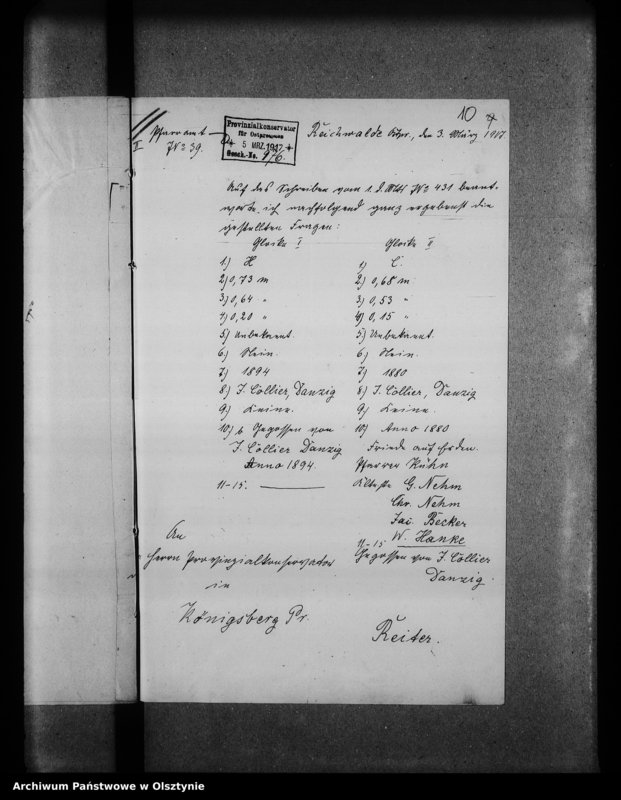 10
Pfarramt
II
No 39.
Provinzialkonservator
für Ostpreussen
5 MRZ. 1917
Gesch.-No. 976.
Reichwalde Ostpr., den 3. März 1917
Auf das Schreiben vom 1. d. Mts No 431 beant-
worte ich nachfolgend ganz ergebenst die
gestellten Fragen:
Glocke I
1) H
2) 0,73 m
3) 0,64 "
4) 0,20 "
5) Unbekannt
6) Nein.
7) 1894
8) J. Cöllier, Danzig
9) Keine.
10) b Gegossen von
J. Cöllier Danzig
Anno 1894.
11-15.
Glocke II
1) C.
2) 0,68 m.
3) 0,53 "
4) 0,15 "
5) Unbekannt
6) Nein.
7) 1880
8) J. Cöllier, Danzig
9) Keine.
10) Anno 1880
Friede auf Erden.
Pfarrer Kühn
Älteste G. Nehm
Chr. Nehm
Jac. Becker
W. Hanke
11-15
Gegossen von J. Cöllier
Danzig.
An
Herrn Provinzialkonservator
in
Königsberg Pr.
Reiter.
Archiwum Państwowe w Olsztynie